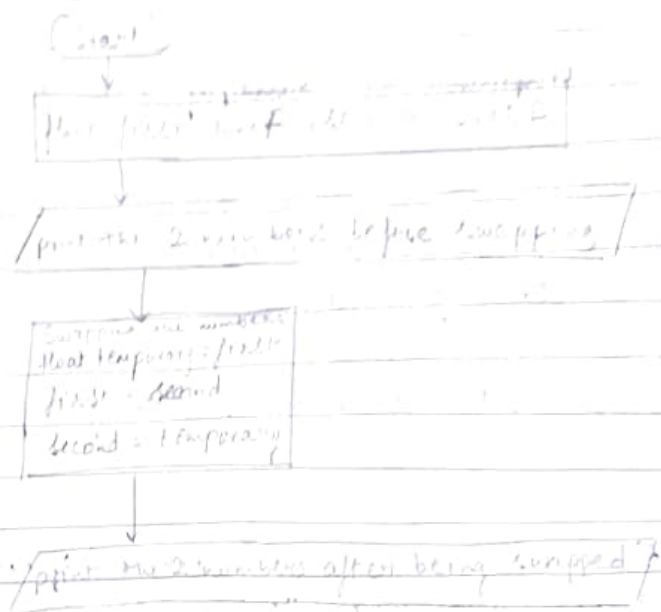 Start
float first
print the 2 numbers before swapping
Swapping the numbers
float temporary = first
first = second
second = temporary
print the 2 numbers after being swapped